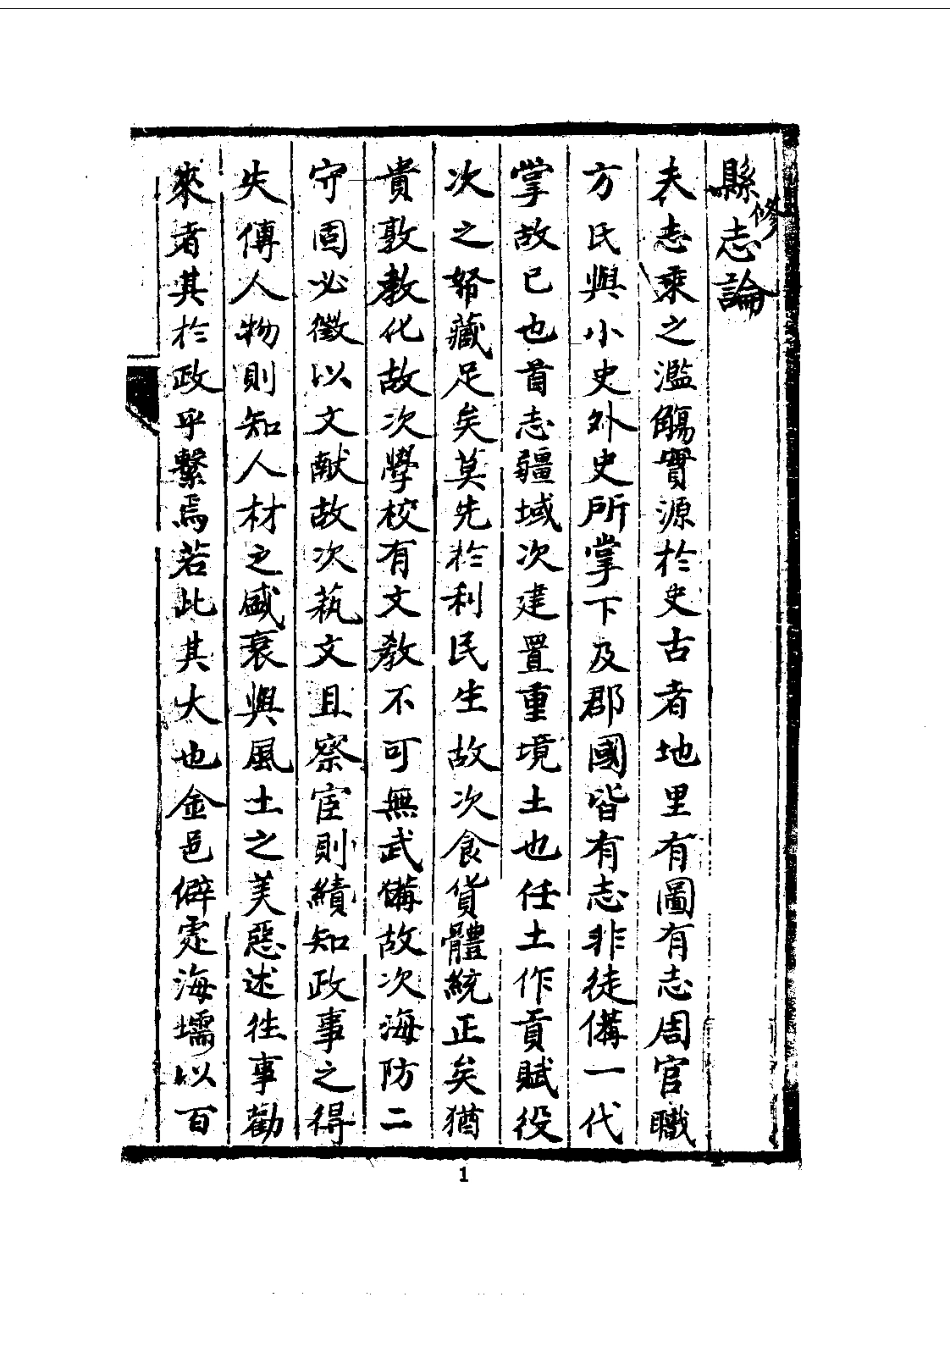 修縣志論
夫志乘之濫觴實源於史古者地里有圖有志周官職
方氏與小史外史所掌下及郡國皆有志非徒備一代
掌故已也首志疆域次建置重境土也任土作貢賦役
次之帑藏足矣莫先於利民生故次食貨體統正矣猶
貴敦教化故次學校有文教不可無武備故次海防二
守固必徵以文献故次藝文且察宦則績知政事之得
失傳人物則知人材之盛衰與風土之美惡述徃事勸
來者其於政乎繫焉若此其大也金邑僻處海壖以百
1